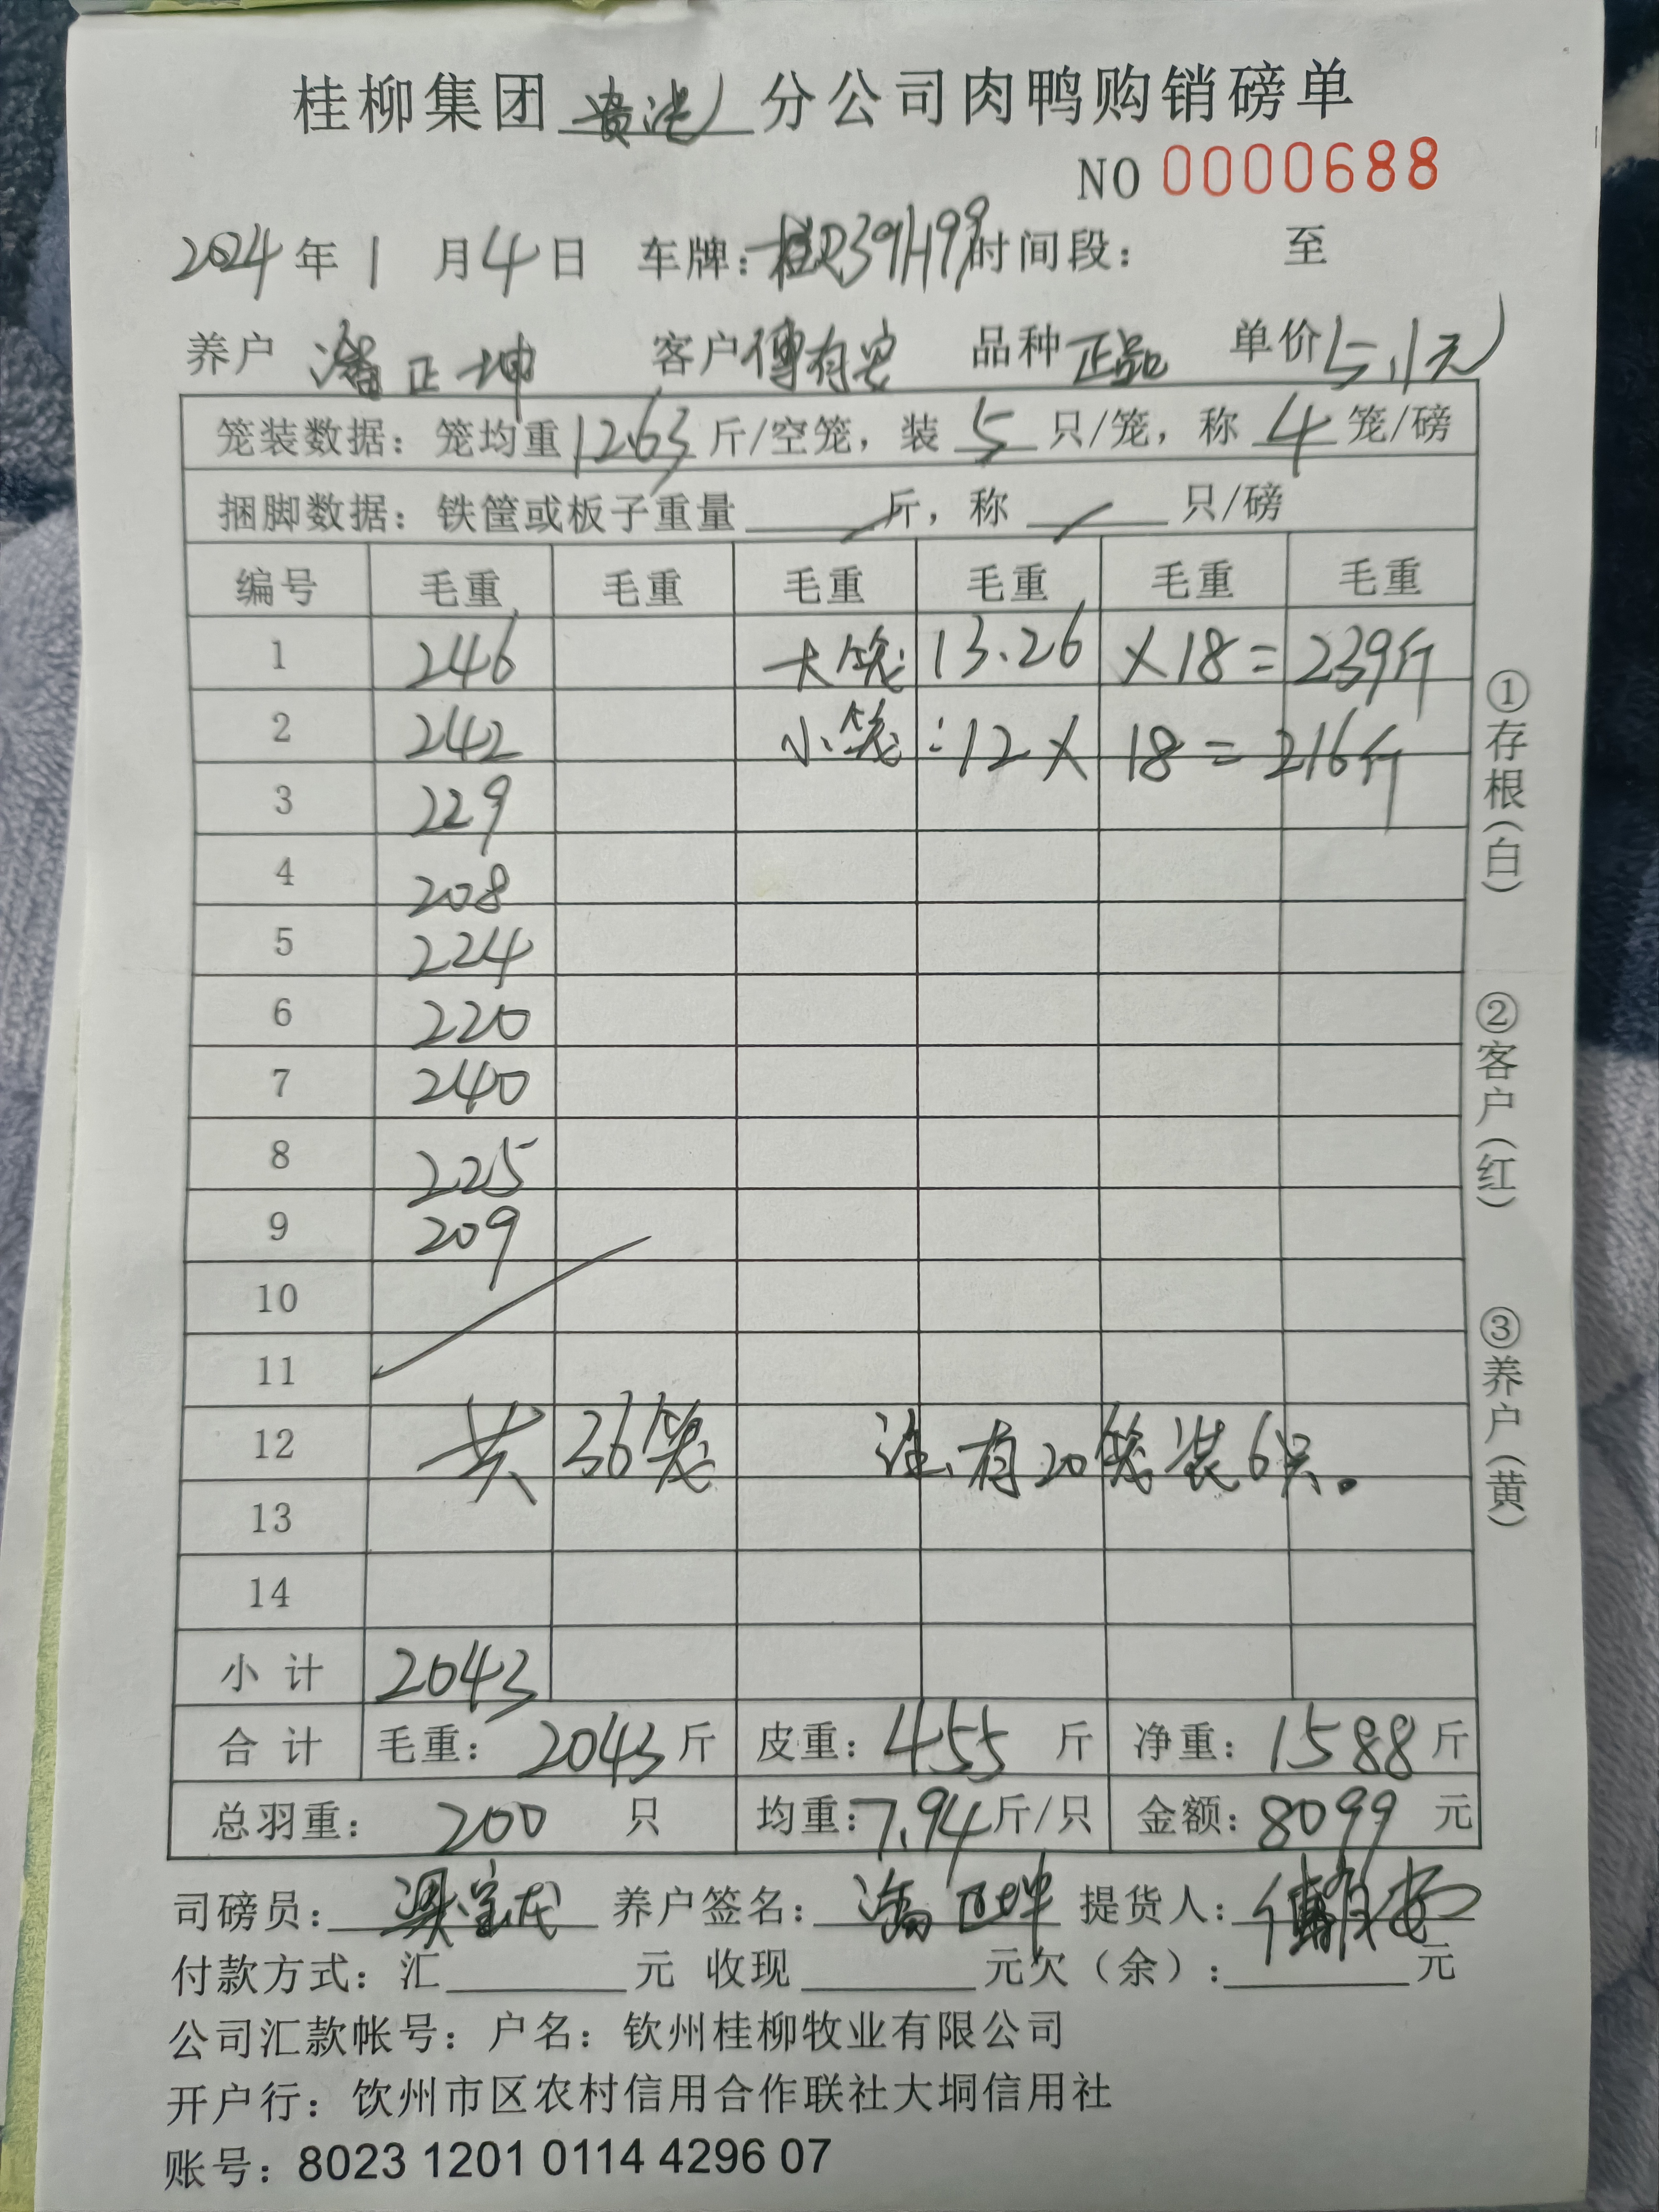 桂柳集团贵港分公司肉鸭购销磅单
NO 0000688
2024年1月4日 车牌：桂R39H99 时间段： 至
养户 潘正坤 客户 傅有安 品种 正品 单价 5.1元
笼装数据：笼均重12.63斤/空笼，装5只/笼，称4笼/磅
捆脚数据：铁筐或板子重量 / 斤，称 / 只/磅
编号 毛重 毛重 毛重 毛重 毛重 毛重
1 246 大笼 13.26 ×18= 239斤
2 242 小笼：12× 18= 216斤
3 229
4 208
5 224
6 220
7 240
8 225
9 209
10
11
12 共36笼 注：有20笼装6只。
13
14
小计 2043
合计 毛重：2043斤 皮重：455斤 净重：1588斤
总羽重：200只 均重：7.94斤/只 金额：8099元
司磅员：梁宝龙 养户签名：潘正坤 提货人：傅有安
付款方式：汇 元 收现 元欠（余）： 元
公司汇款帐号：户名：钦州桂柳牧业有限公司
开户行：钦州市区农村信用合作联社大垌信用社
账号：8023 1201 0114 4296 07
①存根（白）
②客户（红）
③养户（黄）